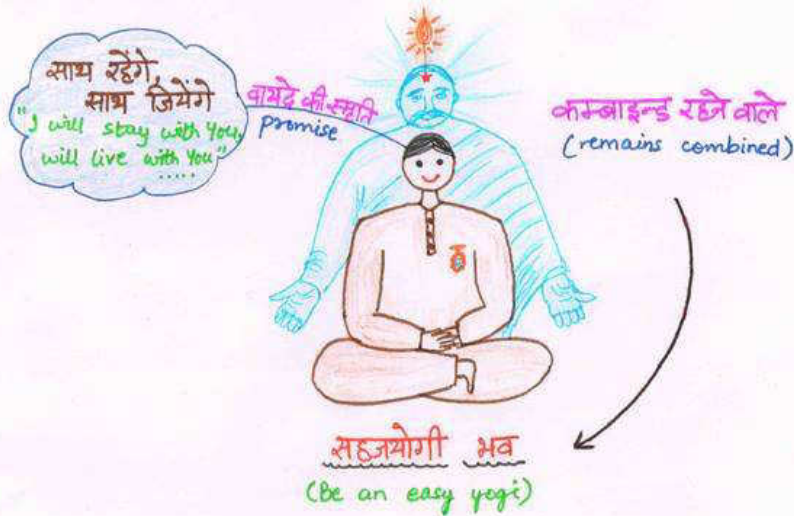 साथ रहेंगे,
साथ जियेंगे
"I will stay with You,
will live with You"
.....
वायदे की स्मृति
promise
कम्बाइन्ड रहने वाले
(remains combined)
सहजयोगी भव
(Be an easy yogi)